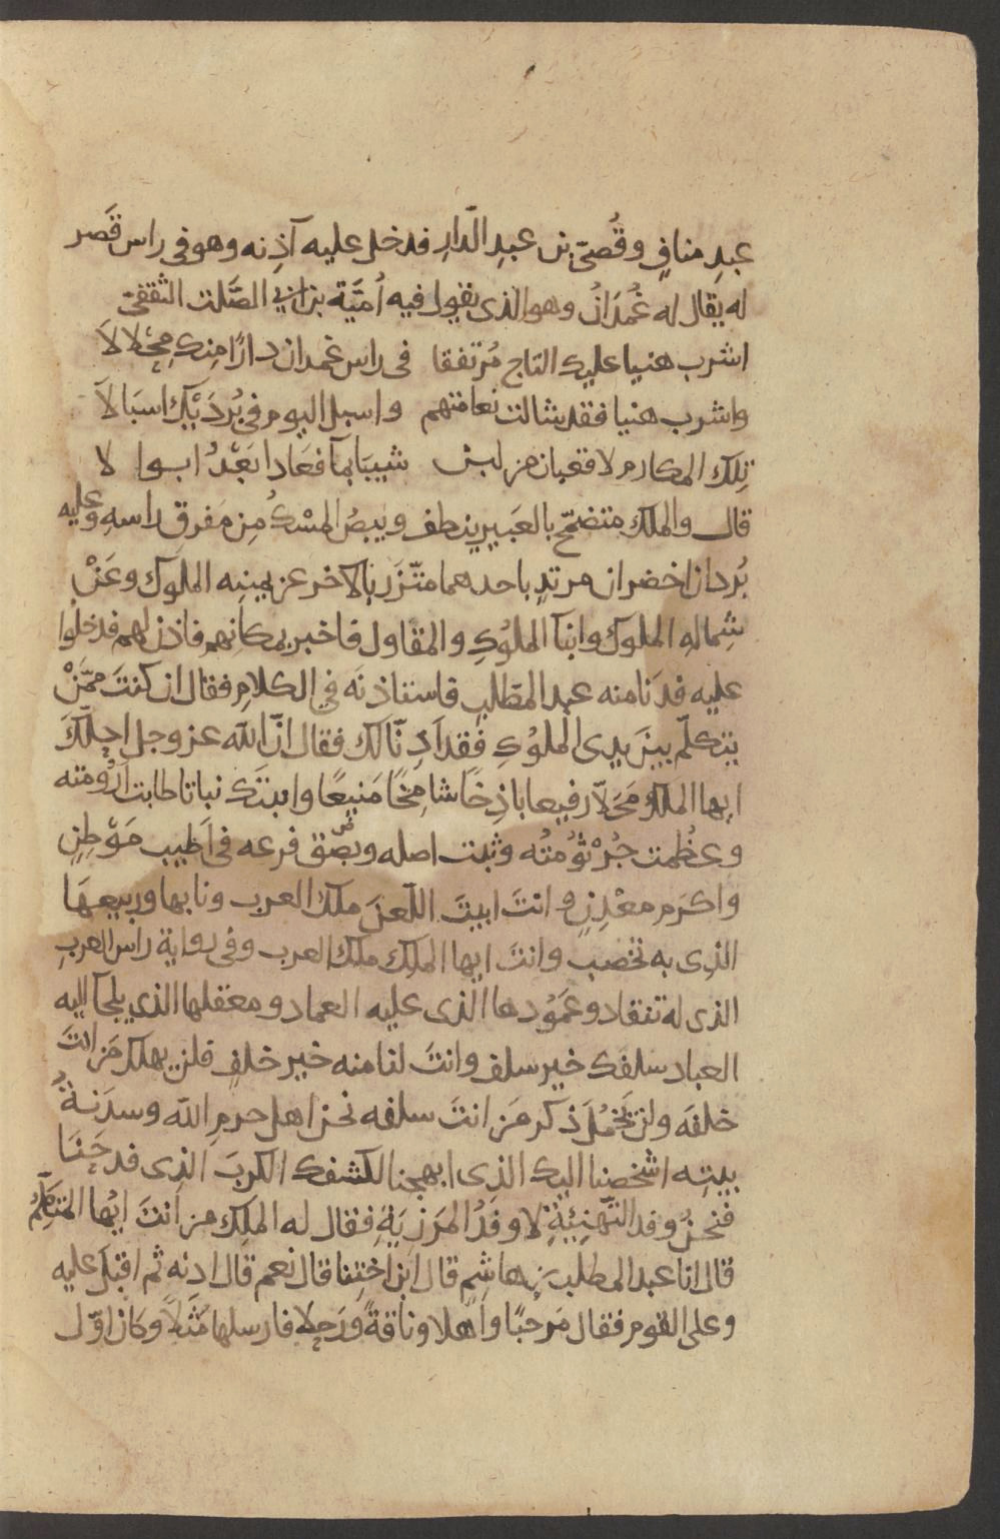 عبدِ منافٍ وقُصىّ بن عبدِ الدّارِ فدخل عليه آذِنه وهو فى راس قَصر
له يقال له غُمدَانُ وهو الذى يقول فيه اُميَّة بن ابى الصَّلت الثقفىّ
اشرب هنيا عليك التاج مُرتفقا فى راس غمدان دارًا منك مِحْلالاَ
واشرب هنيا فقد شالت نعامتهم واسبل اليوم فى بُردَيْكَ اسبَالاَ
تِلكَ المكارم لا قعبان من لبن شيبَا بمآ فعَادا بَعْدُ ابوا لا
قال والملك متضمّخ بالعَبير ينطف وبيصُ المسْكُ مِن مَفرقِ راسهِ وعليه
بُردان اخضران مرتدٍ باحدهما متّزَر بالاخر عن يمينه الملوك وعَنْ
شِمالهِ الملوك وابنآ الملوُكِ والمقاول فاخبر بمكانِهم فاذن لهم فدخلوُا
عليه فدَنا منه عبد المطّلبِ فاستاذنَه فى الكلامِ فقال ان كنتَ ممَّنْ
يتكلّم بينَ يدى الملوُكِ فَقد اَذِنّا لك فقال انّ الله عزوجل احلّكَ
ايها الملك مَحَلاّ رفيعا باذِخًا شامِخًا مَنيعًا وابنتَك نباتا طابت اَرُومته
وعظُمت جُرْثوُمتُه وثبت اصله وبصَق فرعه فى اَطيبِ مَوْطِنٍ
واكرَم معْدِنٍ وانتَ ابيتَ اللّعنَ ملك العرب ونابها وربيعهَا
الذى به تخصب وانتَ ايها الملِك ملك العرب وفى رواية راس العربِ
الذى له تنقاد وعَمُودها الذى عليه العماد ومعقلها الذى يلجآ اليه
العباد سلفك خير سلف وانتَ لنا منه خير خلفٍ فلن يهلك مَن انتَ
خلفَه ولن يَخْمُلَ ذكر مَن انتَ سلفه نحن اهل حرمِ الله وسدَنةُ
بيتِه اشخصنا اليك الذى ابهجنا لكشفك الكربَ الذى فدحَنَا
فنحنُ وفد التّهنِئِةِ لا وفَدُ المَرزِيَةِ فقال له الملِك من اَنتَ ايُها المتكلّمُ
قال انا عبد المطلب بن هاشِمٍ قال ابن اختِنا قال نعم قال ادنه ثم اقبلَ عليه
وعلى القوم فقال مَرحبًا واَهلا وناقةً ورَحلا فارسلها مَثَلاً وكان اوّل